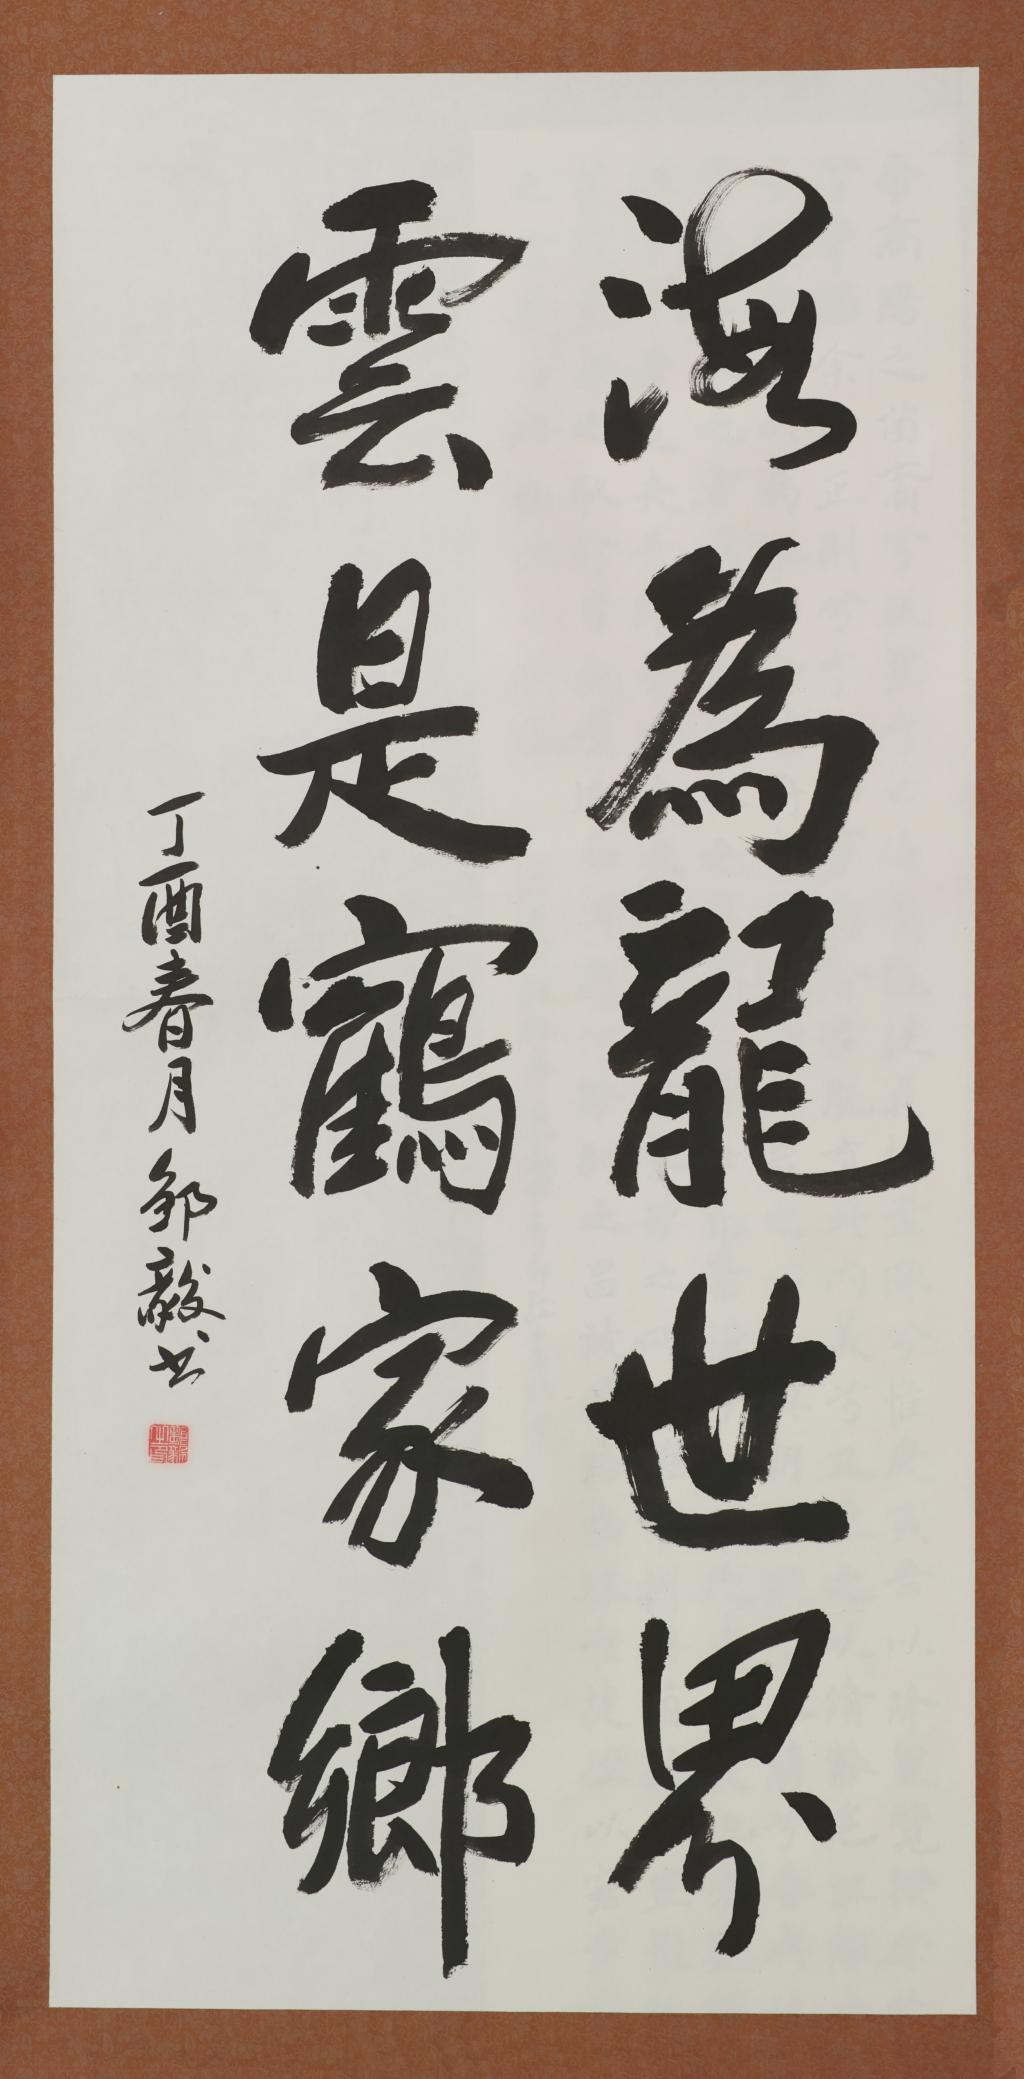 海為龍世界
雲是鶴家鄉
丁酉春月鄒毅書